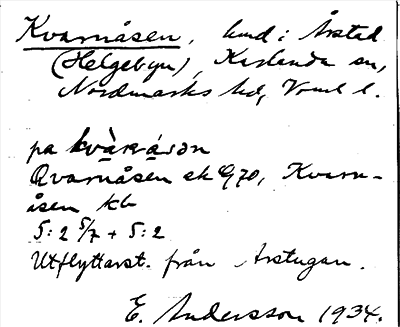 Kvarnåsen, hmd i Årstad
(Helgebyn), Karlanda sn,
Nordmarks hd, Verml l.
pa kvàrnåsən
Qvarnåsen ek G70, Kvarn-
åsen kb
5:2 5/7 + 5:2
Utflyttarst. från Årstugan.
E. Andersson 1934.